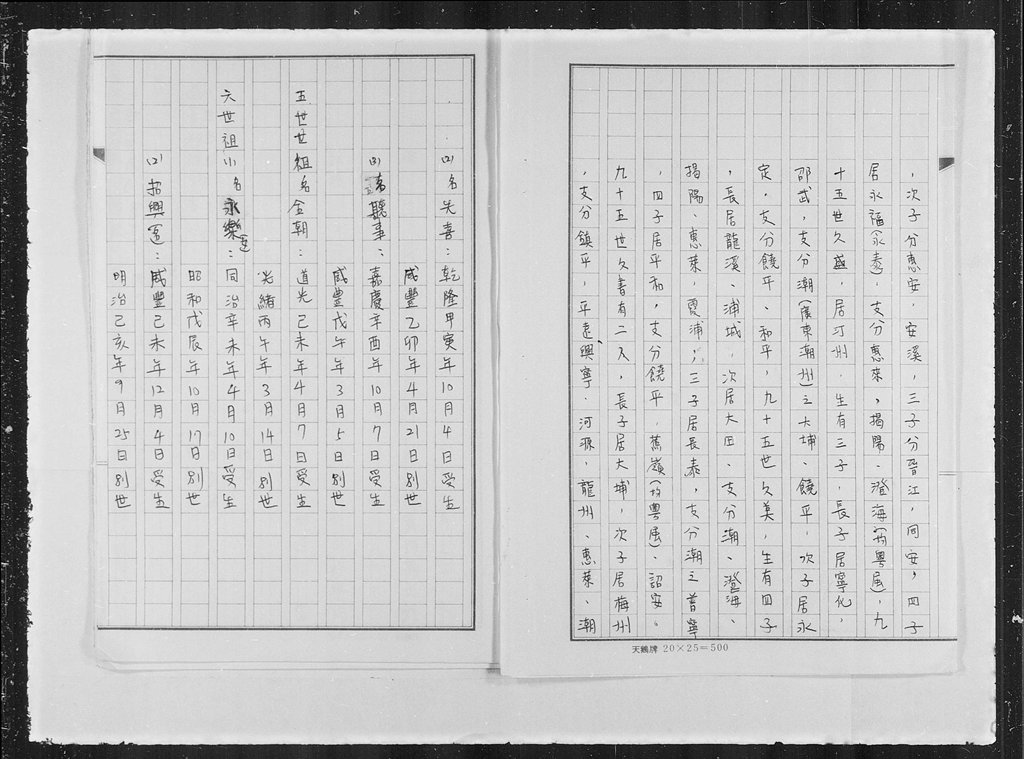 ，次子分惠安，安溪，三子分晉江，同安，四子
居永福(永泰)，支分惠來，揭陽、澄海(均粤屬)，九
十五世久盛，居汀州，生有三子，長子居寧化，
邵武，支分潮(廣東潮州)之大埔、饒平，次子居永
定，支分饒平、和平，九十五世久美，生有四子
，長居龍溪、浦城，次居大田、支分潮、澄海、
揭陽、惠萊，霞浦，三子居長泰，支分潮之普寧
，四子居平和，支分饒平、蕉嶺(均粤屬)、詔安。
九十五世久書有二人，長子居大埔，次子居梅州
，支分鎮平，平遠興寧、河源、龍州、惠萊、潮
天鵝牌 20×25=500
(2)名先喜：乾隆甲寅年10月4日受生
咸豐乙卯年4月21日別世
(3)名聽事：嘉慶辛酉年10月7日受生
咸豐戊午年3月5日別世
五世世祖名金朝：道光己未年4月7日受生
光緒丙午年3月14日別世
六世祖小名永樂：同治辛未年4月10日受生
昭和戊辰年10月17日別世
(2)招興：咸豐己未年12月4日受生
明治己亥年9月25日別世